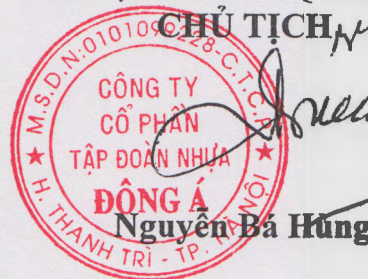 CHỦ TỊCH
M.S.D.N:0101099228-C.T.C.P
CÔNG TY
CỔ PHẦN
TẬP ĐOÀN NHỰA
ĐÔNG Á
H. THANH TRÌ - TP. HÀ NỘI
Nguyễn Bá Hùng